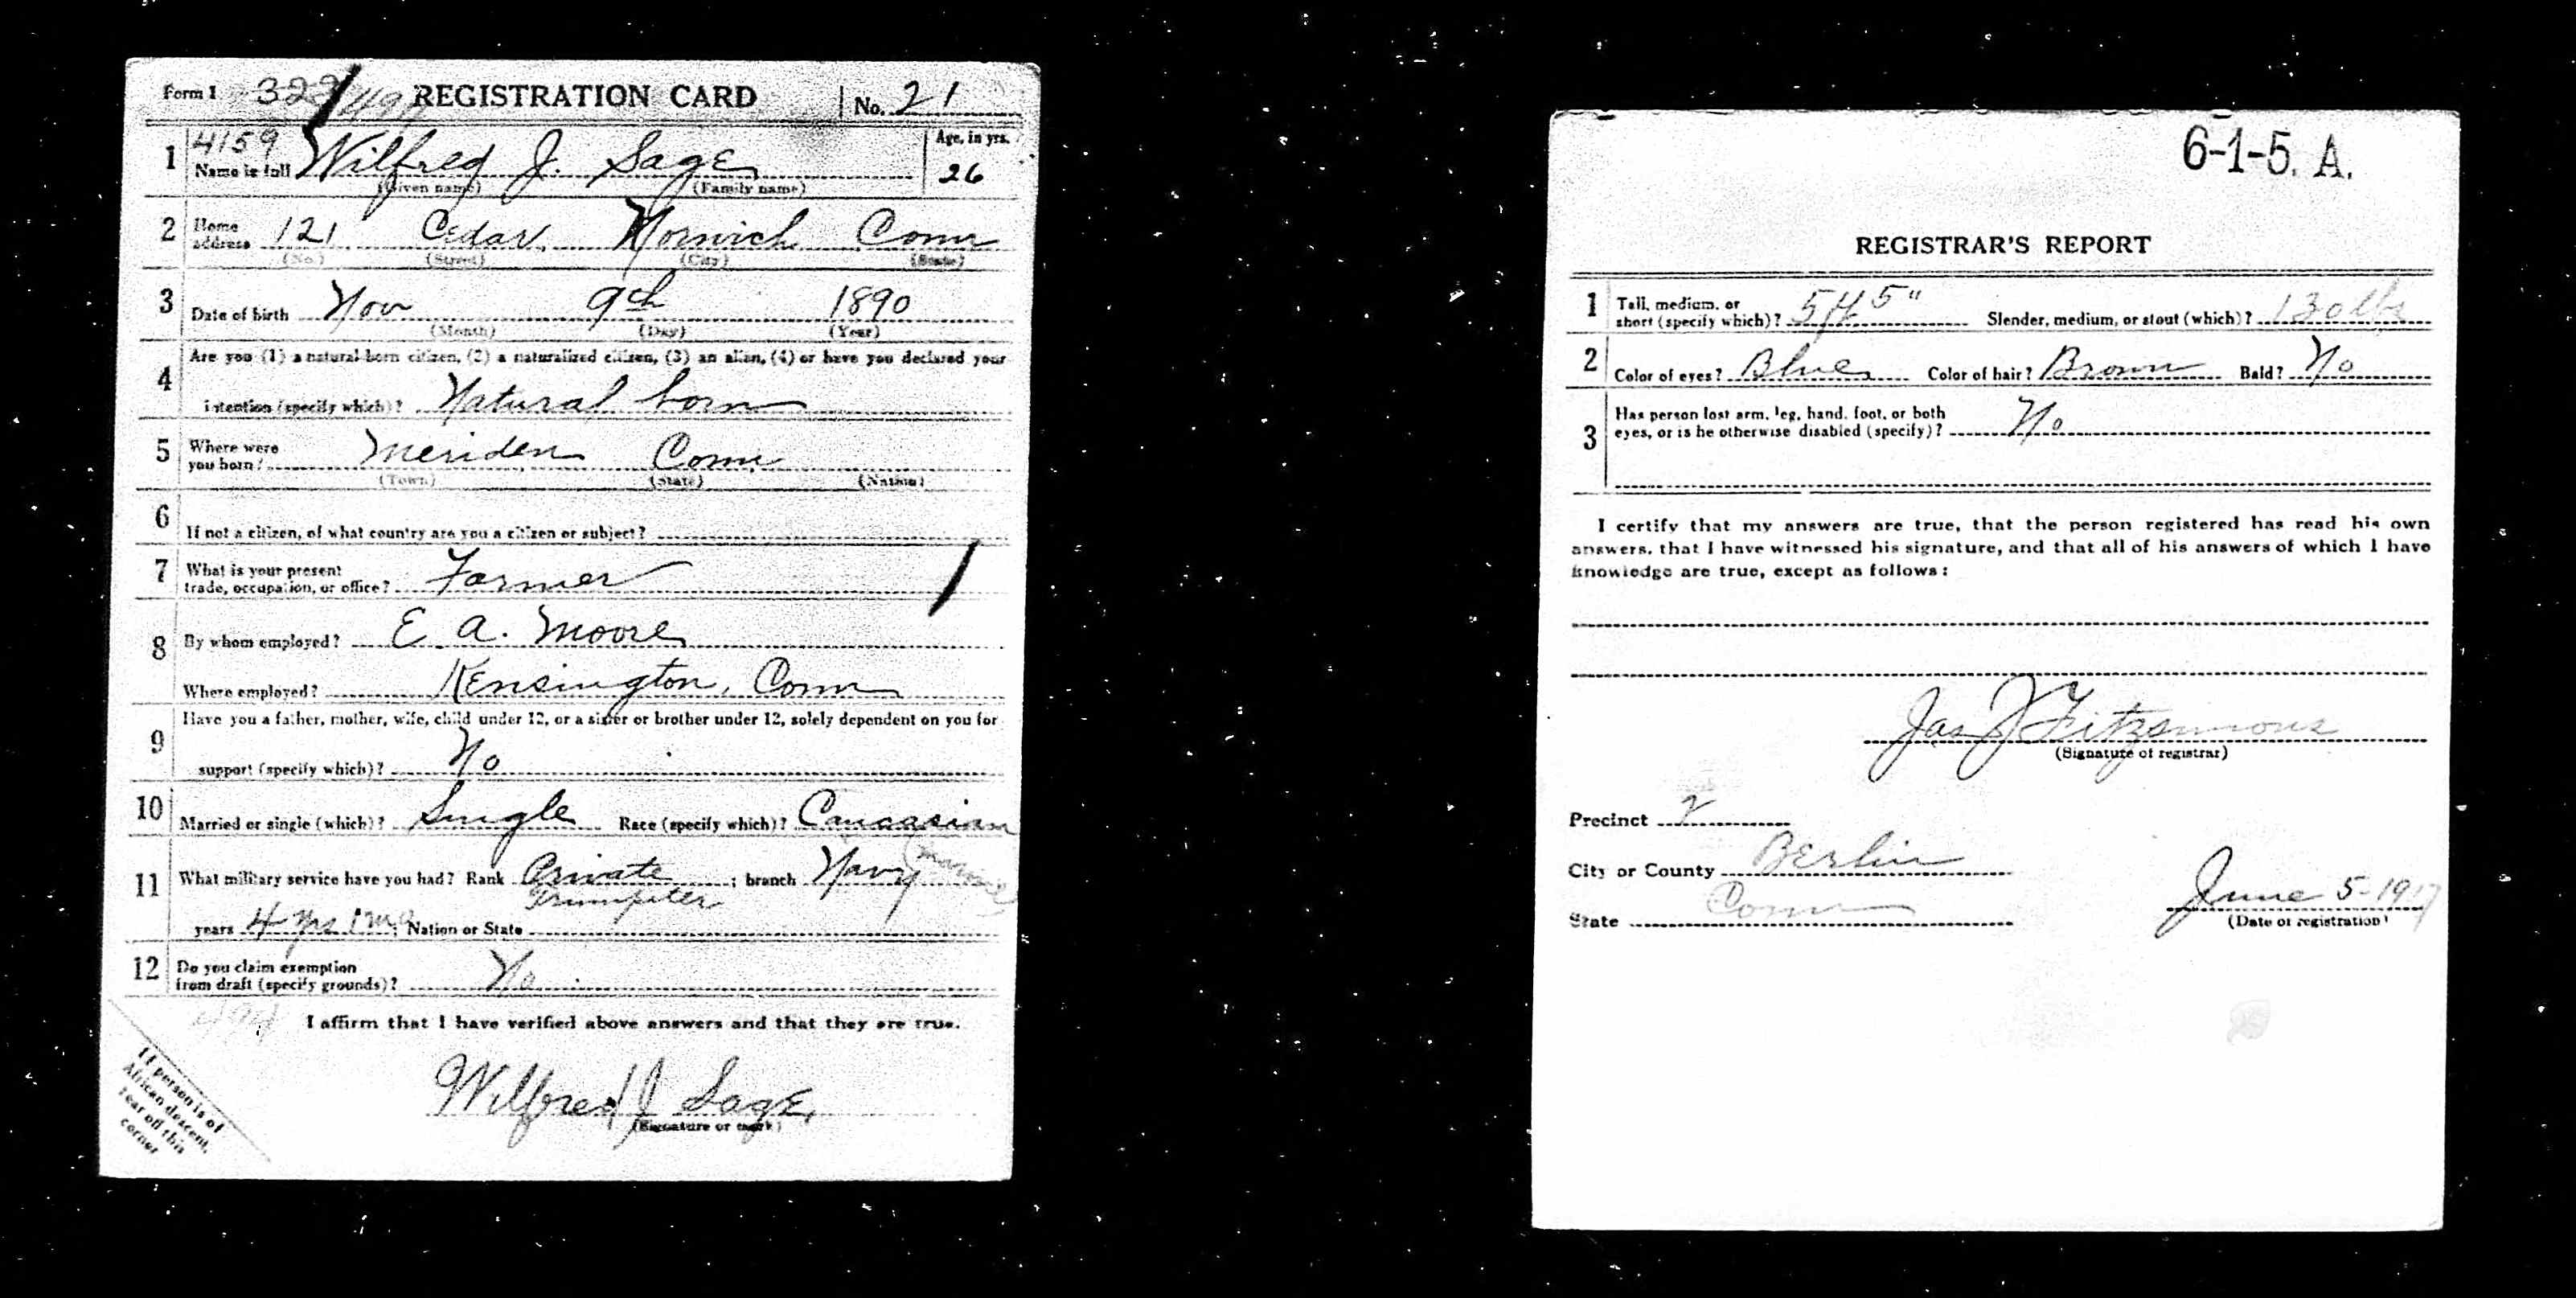 Form 1 322 REGISTRATION CARD No. 21
4159
1 Name in full Wilfred J. Sage Age, in yrs. 26
(Given name) (Family name)
2 Home address 121 Cedar, Norwich Conn
(No.) (Street) (City) (State)
3 Date of birth Nov 9th 1890
(Month) (Day) (Year)
4 Are you (1) a natural-born citizen, (2) a naturalized citizen, (3) an alien, (4) or have you declared your
intention (specify which)? Natural born
5 Where were you born? Meriden Conn
(Town) (State) (Nation)
6 If not a citizen, of what country are you a citizen or subject?
7 What is your present trade, occupation, or office? Farmer
8 By whom employed? E. A. Moore
Where employed? Kensington, Conn
9 Have you a father, mother, wife, child under 12, or a sister or brother under 12, solely dependent on you for
support (specify which)? No
10 Married or single (which)? Single Race (specify which)? Caucasian
11 What military service have you had? Rank Private ; branch Navy (marine)
Trumpiter
years 4 yrs 1 mo; Nation or State
12 Do you claim exemption from draft (specify grounds)? No
494
I affirm that I have verified above answers and that they are true.
Wilfred J Sage
(Signature or mark)
If person is of
African descent,
tear off this
corner
6-1-5. A.
REGISTRAR'S REPORT
1 Tall, medium, or short (specify which)? 5 ft 5" Slender, medium, or stout (which)? 130 lbs
2 Color of eyes? Blue Color of hair? Brown Bald? No
3 Has person lost arm, leg, hand, foot, or both
eyes, or is he otherwise disabled (specify)? No
I certify that my answers are true, that the person registered has read his own
answers, that I have witnessed his signature, and that all of his answers of which I have
knowledge are true, except as follows:
Jas J Fitzsimons
(Signature of registrar)
Precinct 2
City or County Berlin
State Conn
June 5-1917
(Date of registration)